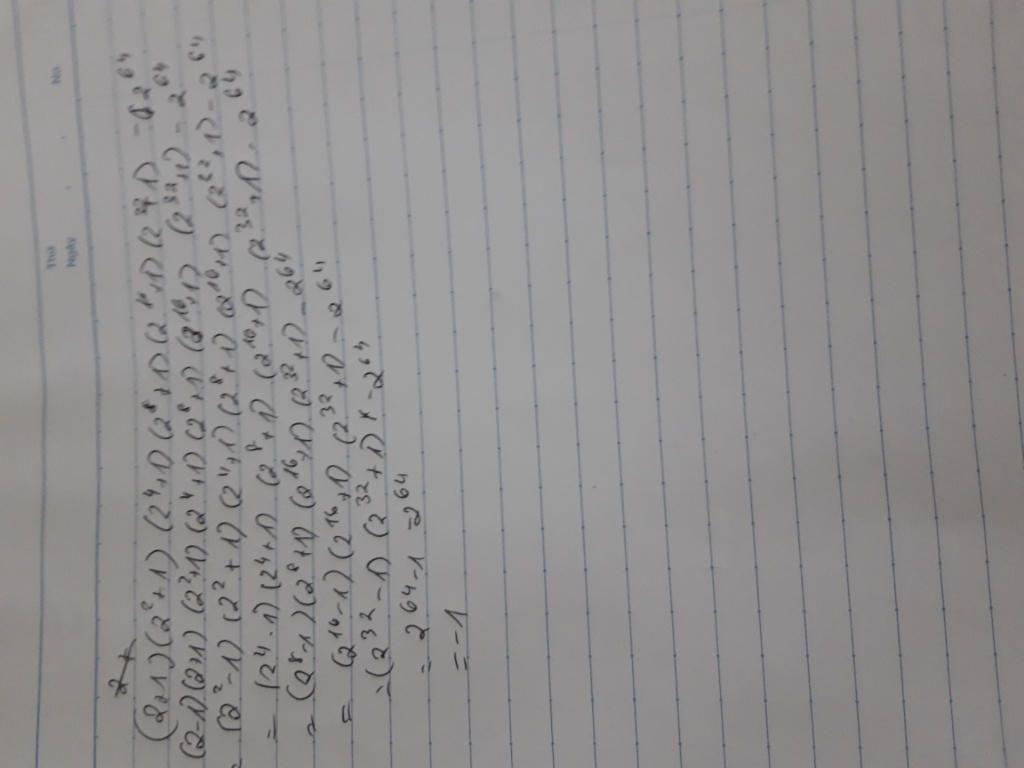 Thứ
Ngày
No.
2
(2+1)(2²+1)(2⁴+1)(2⁸+1)(2¹⁶+1)(2³²+1) - 2⁶⁴
(2-1)(2+1)(2²+1)(2⁴+1)(2⁸+1)(2¹⁶+1)(2³²+1) - 2⁶⁴
= (2²-1)(2²+1)(2⁴+1)(2⁸+1)(2¹⁶+1)(2³²+1) - 2⁶⁴
= (2⁴-1)(2⁴+1)(2⁸+1)(2¹⁶+1)(2³²+1) - 2⁶⁴
= (2⁸-1)(2⁸+1)(2¹⁶+1)(2³²+1) - 2⁶⁴
= (2¹⁶-1)(2¹⁶+1)(2³²+1) - 2⁶⁴
= (2³²-1)(2³²+1) - 2⁶⁴
= 2⁶⁴-1-2⁶⁴
= -1